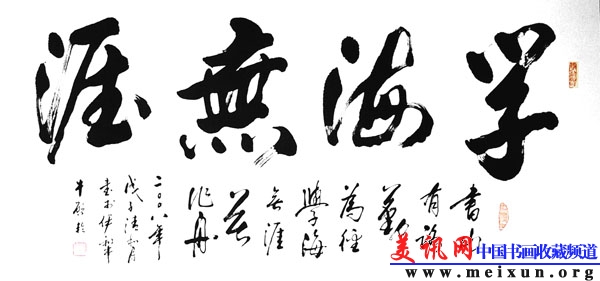 学海無涯
書山
有路
勤
為徑
學海
无涯
苦
作舟
二〇〇八年
戊子清和月
美讯网 中国书画收藏频道
www.meixun.org